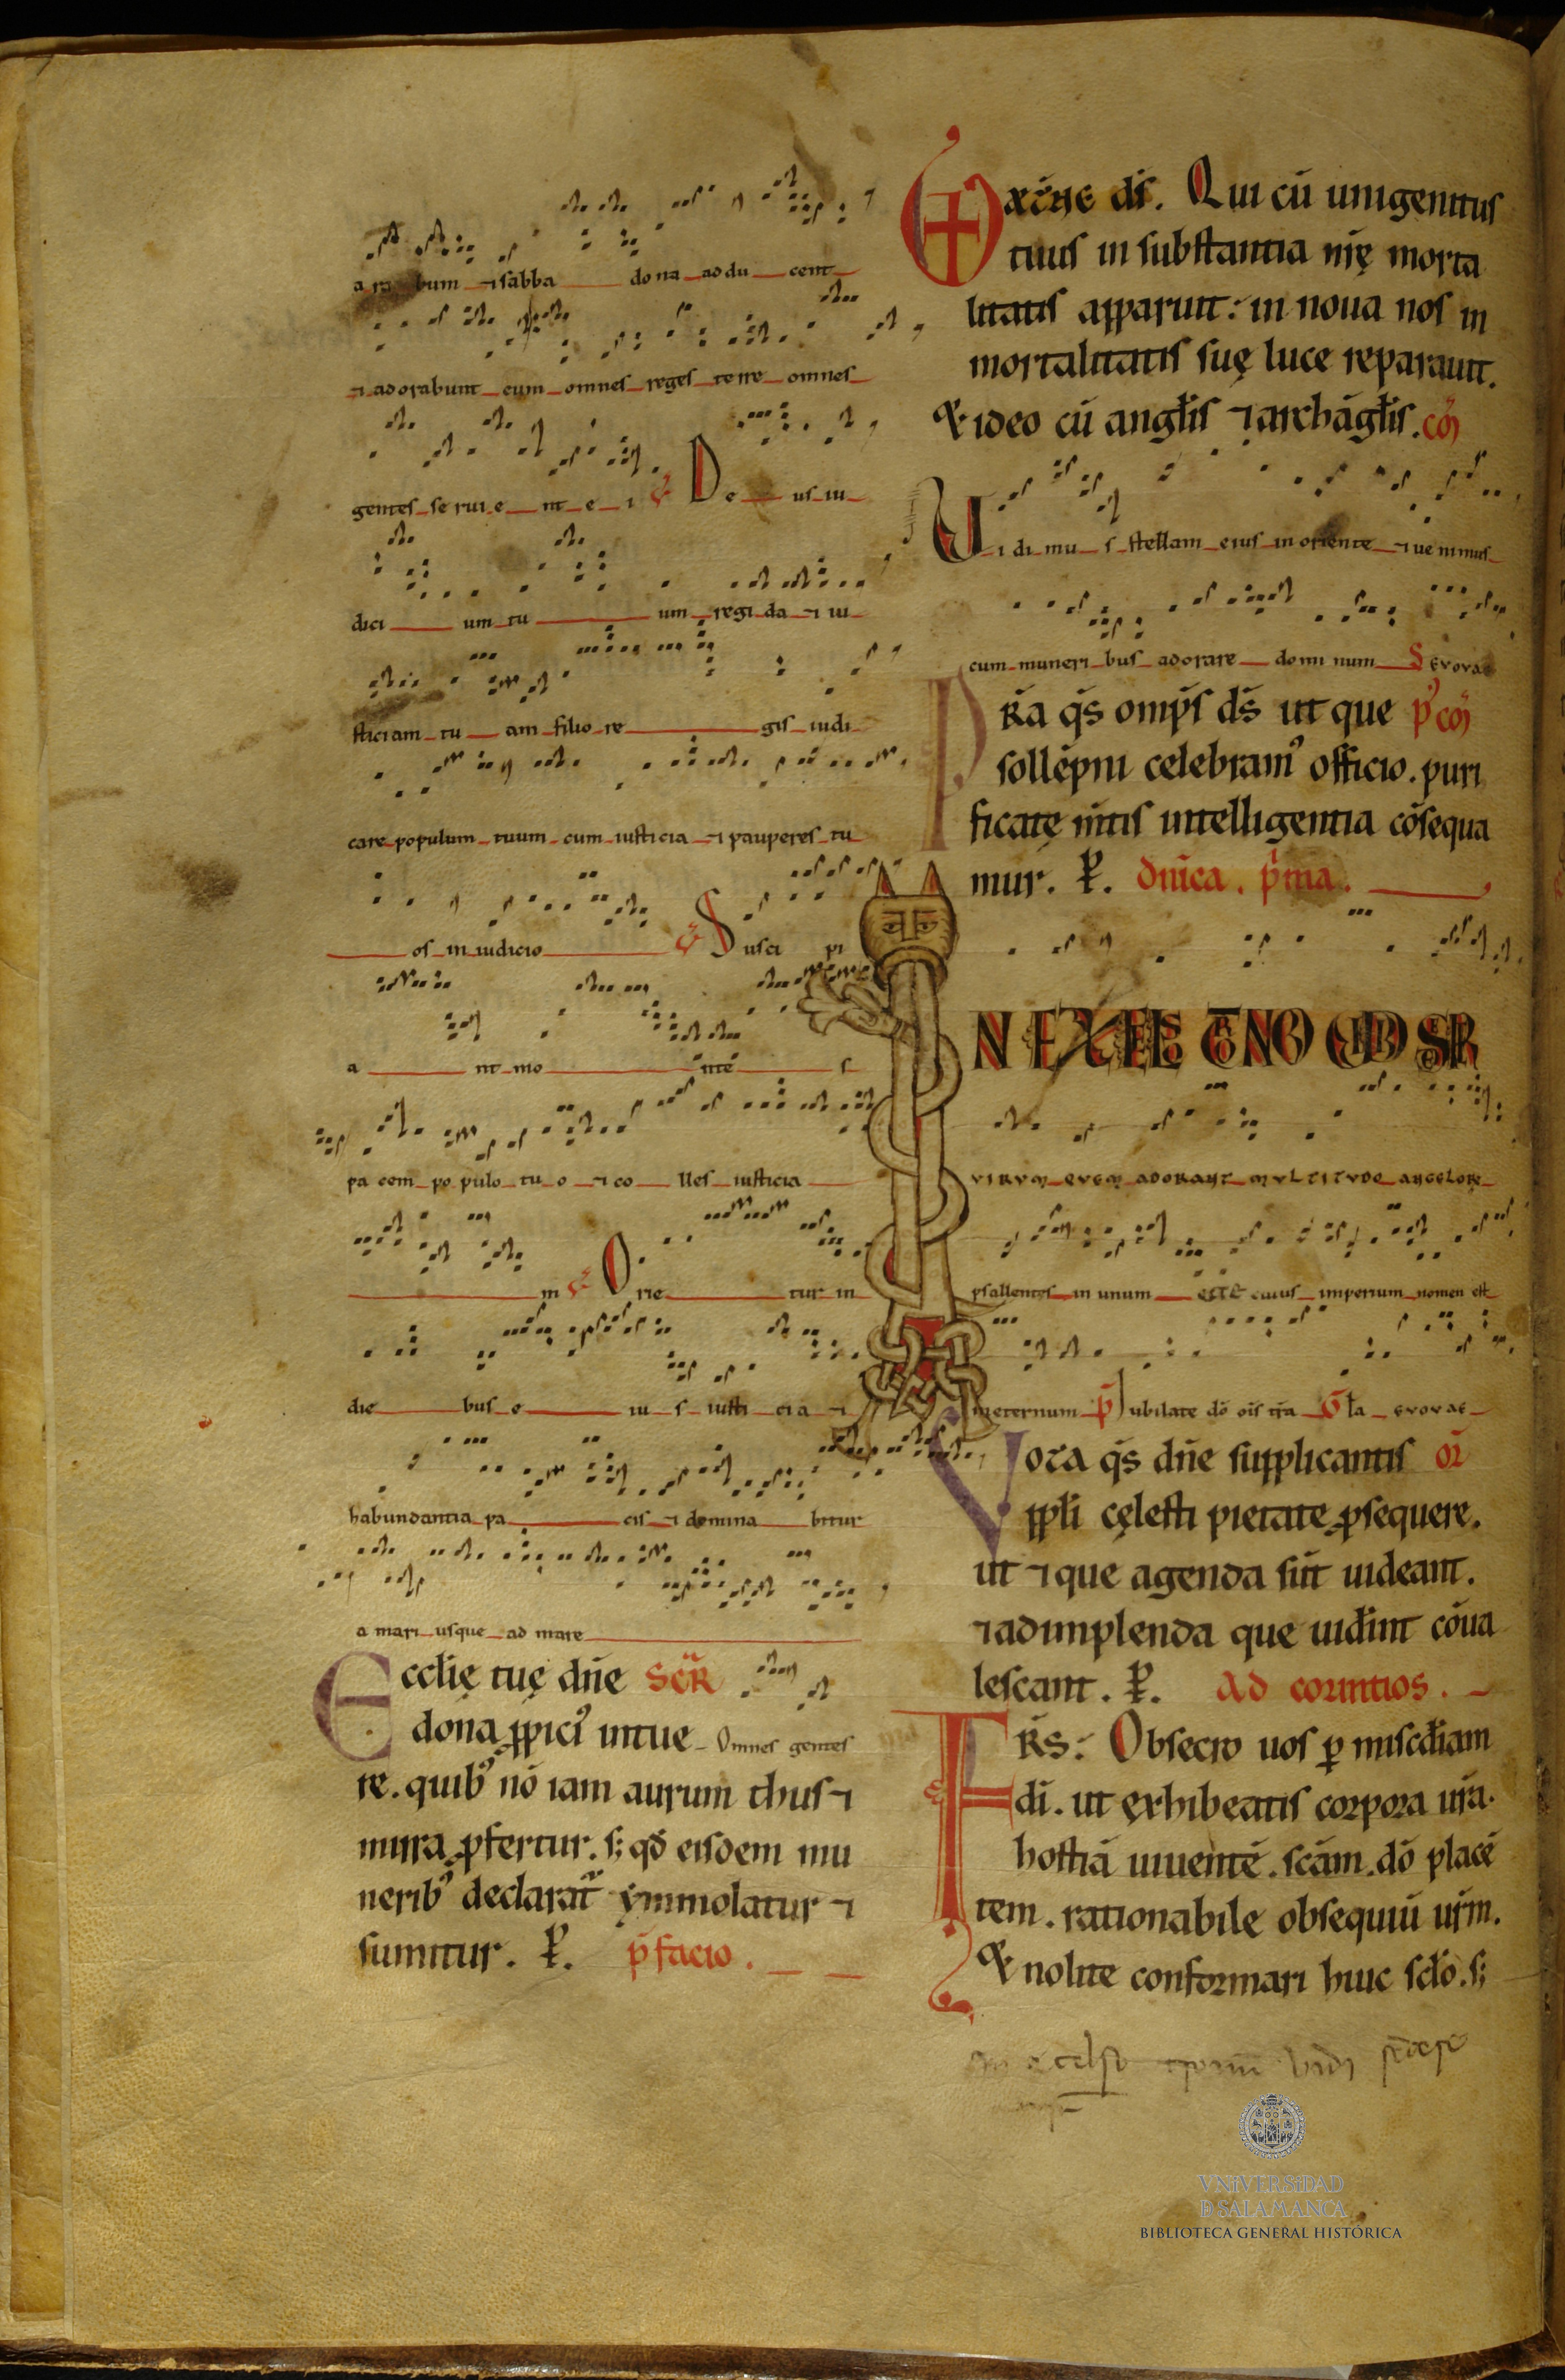 a ra bum ⁊ sabba do na addu cent
⁊ adorabunt eum omnes reges terre omnes
gentes se rui e nt e i ℣ De us iu
dici um tu um regi da ⁊ iu
sticiam tu am filio re gis iudi
care populum tuum cum iusticia ⁊ pauperes tu
os in iudicio ℣ Susci pi
a nt mo nte s
pa cem po pulo tu o ⁊ co lles iusticia
m ℣ Orie tur in
die bus e iu s iusti cia ⁊
habundantia pa cis ⁊ domina bitur
a mari usque ad mare
Ecclię tuę dn̄e SCR̄
dona ꝓpici⁹ intue Omnes gentes
re. quib⁹ nō iam aurum thus ⁊
mirra ꝓfertur. s; qd̄ eisdem mu
nerib⁹ declarat̄ ymmolatur ⁊
sumitur. P̄. p̄facio.
ds̄. Qui cū unigenitus
tuus in substantia nr̄ę morta
litatis apparuit: in noua nos in
mortalitatis suę luce reparauit.
Et ideo cū angl̄is ⁊ archāgl̄is. cō
Ui di mu s stellam eius in oriente ⁊ ue nimus
cum muneri bus adorare domi num S evovae
PR̄a qs̄ omp̄s ds̄ ut que p⁹cō
sollēpni celebram⁹ officio. puri
ficatę m̄tis intelligentia cōsequa
mur. P̄. dn̄ica. p̄ma.
IN EXCELSO TRONO VIDI SEDERE
VIRVM QVEM ADORANT MVLTITVDO ANGELORṼ
psallentes in unum ecce cuius imperium nomen est
in eternum p̄ Iubilate dō oīs tr̄a Gl̄a evovae
Vota qs̄ dn̄e supplicantis or̄
ppl̄i cęlesti pietate ꝓsequere.
ut ⁊ que agenda sūt uideant.
⁊ adimplenda que uider̄int cōua
lescant. P̄. Ad corintios.
FR̄S: Obsecro uos ꝑ misc̄diam
dī. ut exhibeatis corpora ur̄a.
hostiā uiuentē. scām. dō placē
tem. rationabile obsequiū ur̄m.
Et nolite conformari huic scl̄o. s;
In ecelso tronū vidi sedere
VNiVERSiDAD
D SALAMANCA
BIBLIOTECA GENERAL HISTÓRICA